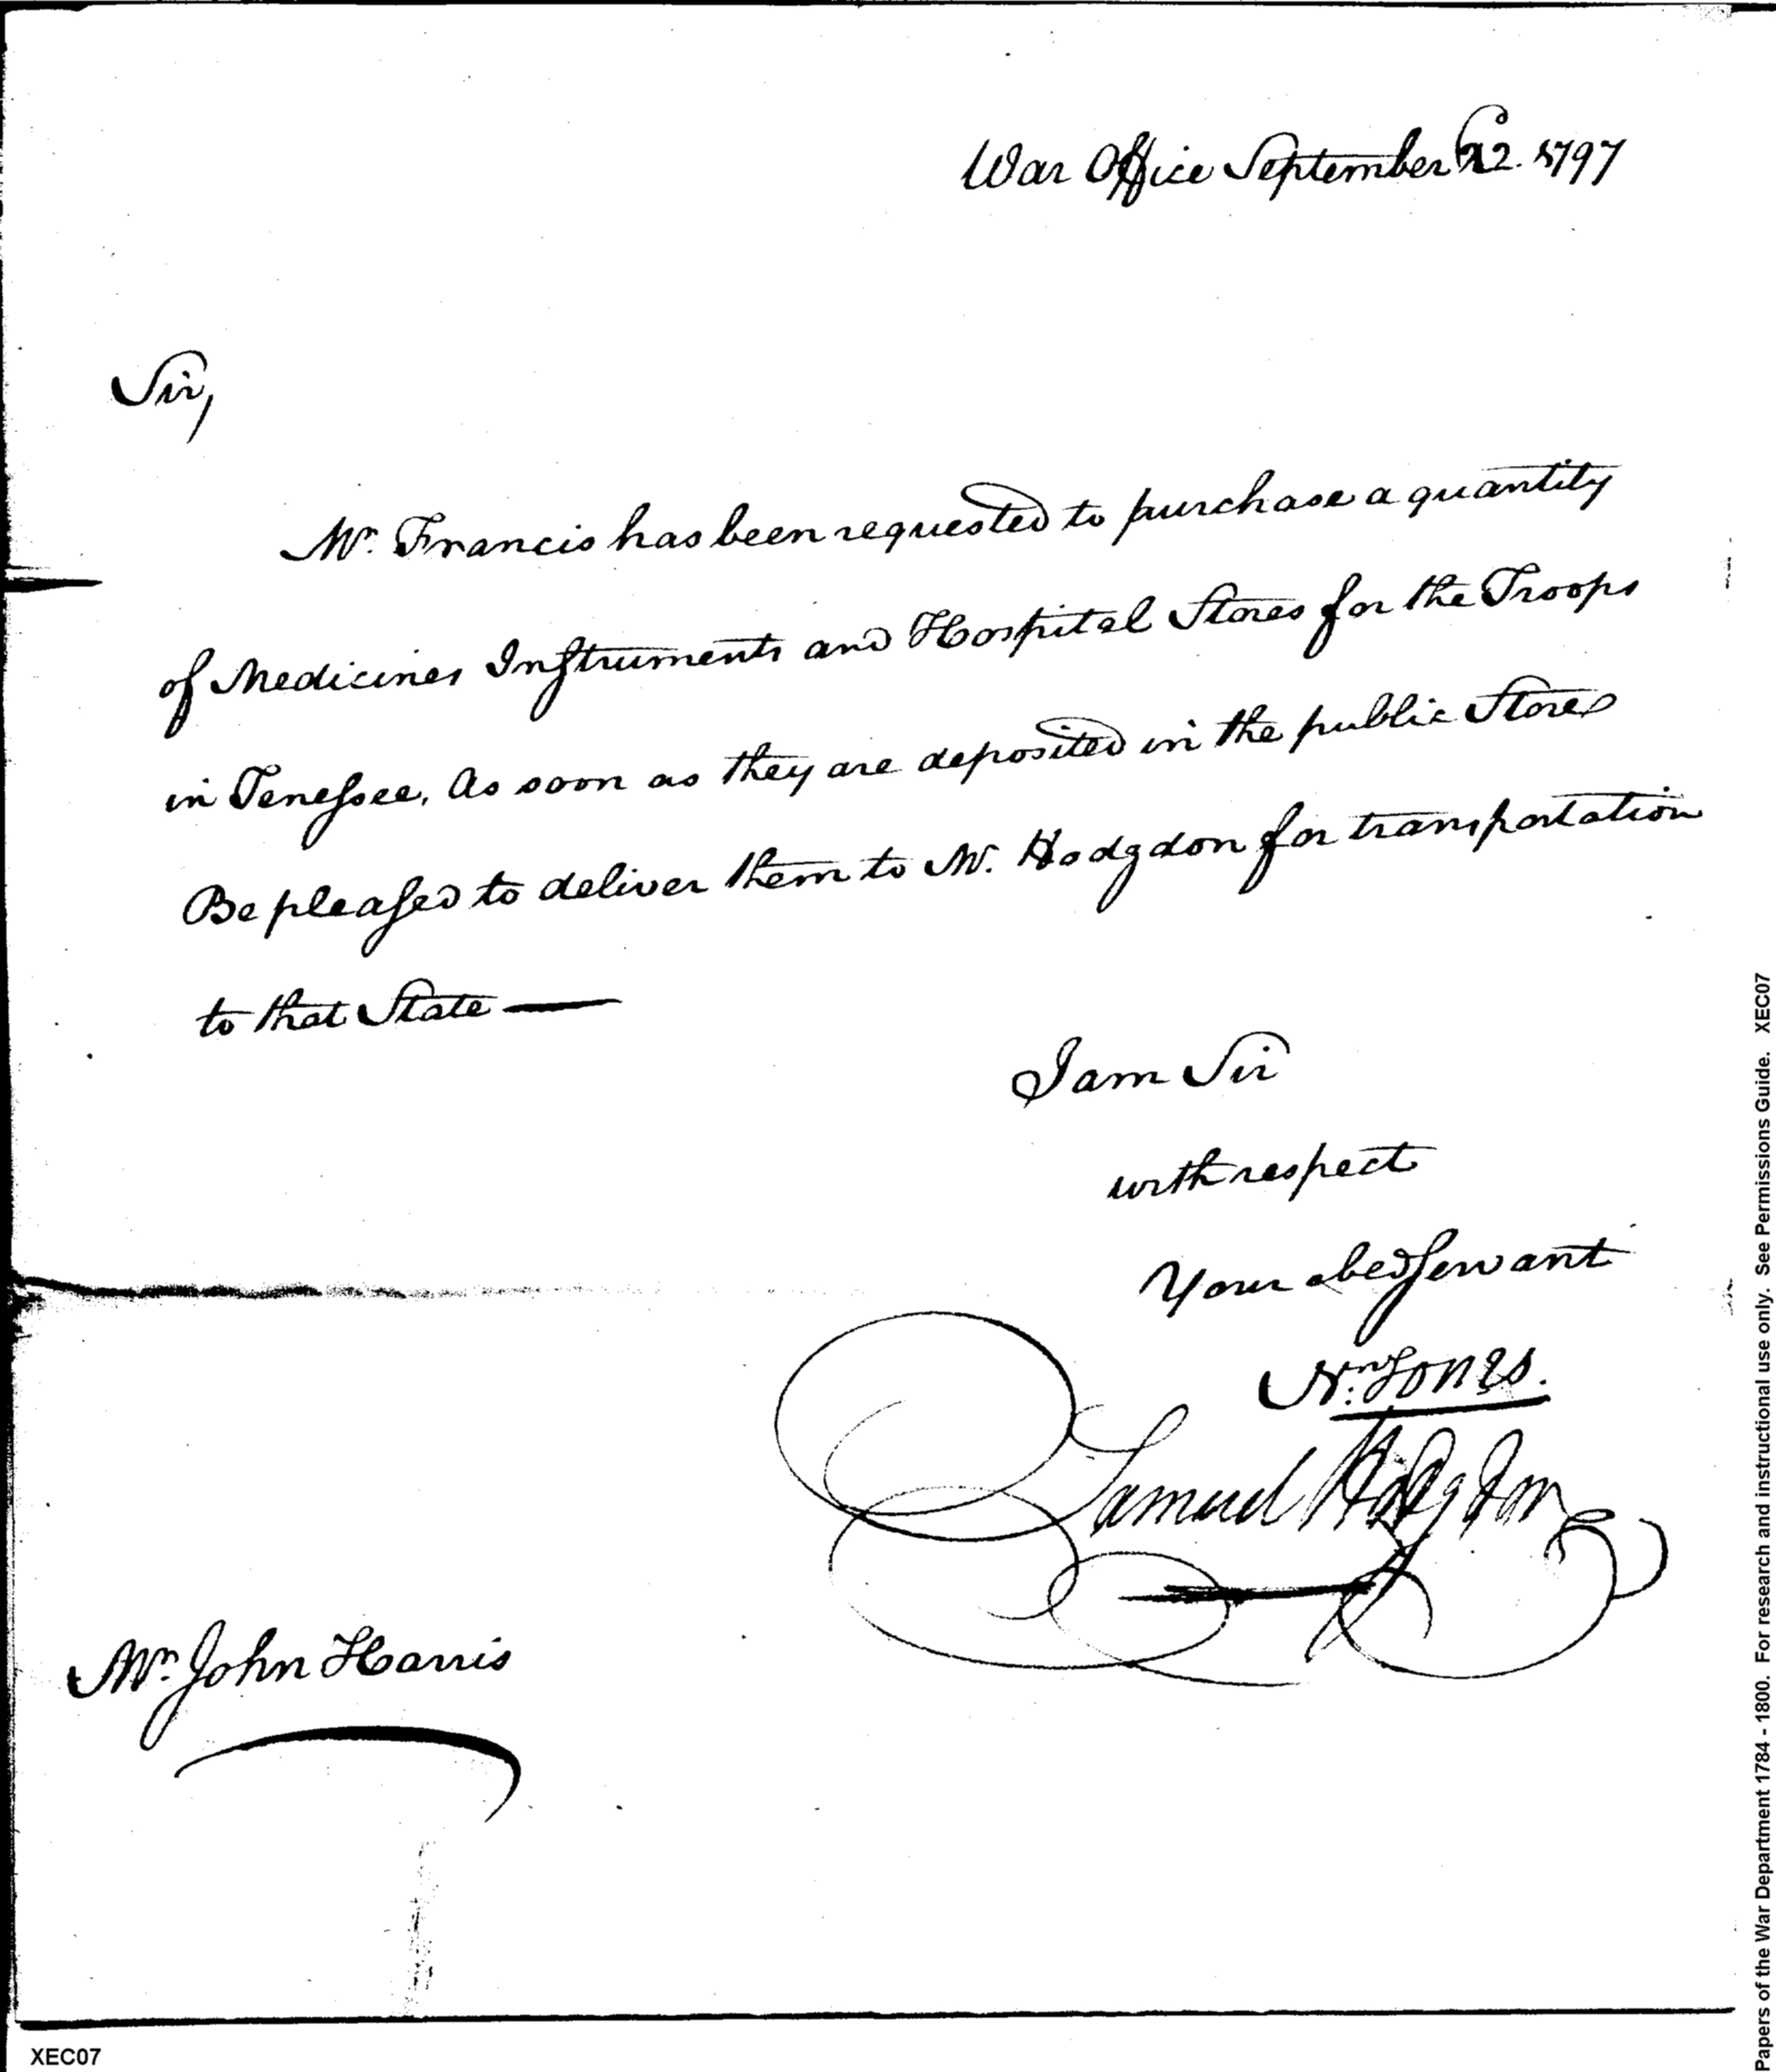 War Office September 22. 1797
Sir,
Mr. Francis has been requested to purchase a quantity
of Medicines Instruments and Hospital Stores for the Troops
in Tenessee. As soon as they are deposited in the public Stores
Be pleased to deliver them to Mr. Hodgdon for transportation
to that State —
I am Sir
with respect
Your obed Servant
Wm Jones.
Samuel Hodgdon
Mr. John Harris
XEC07
Papers of the War Department 1784 - 1800. For research and instructional use only. See Permissions Guide. XEC07